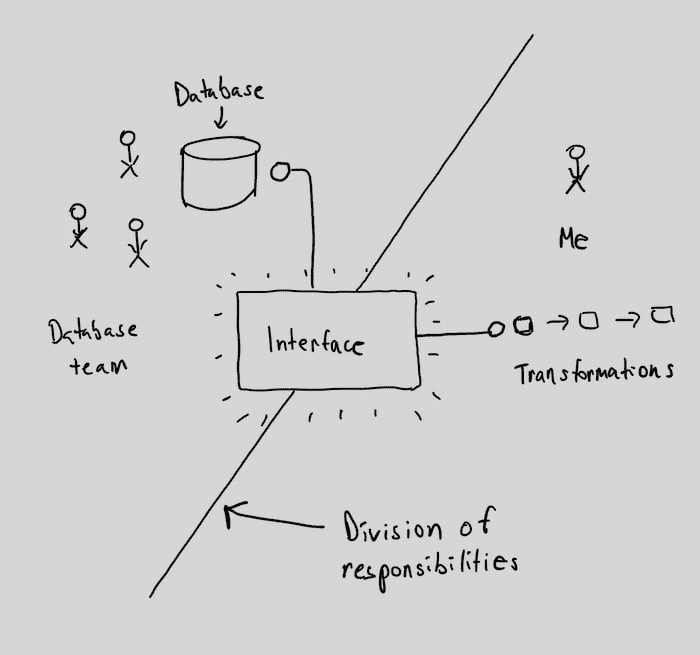 Database
Me
Database
team
Interface
Transformations
Division of
responsibilities